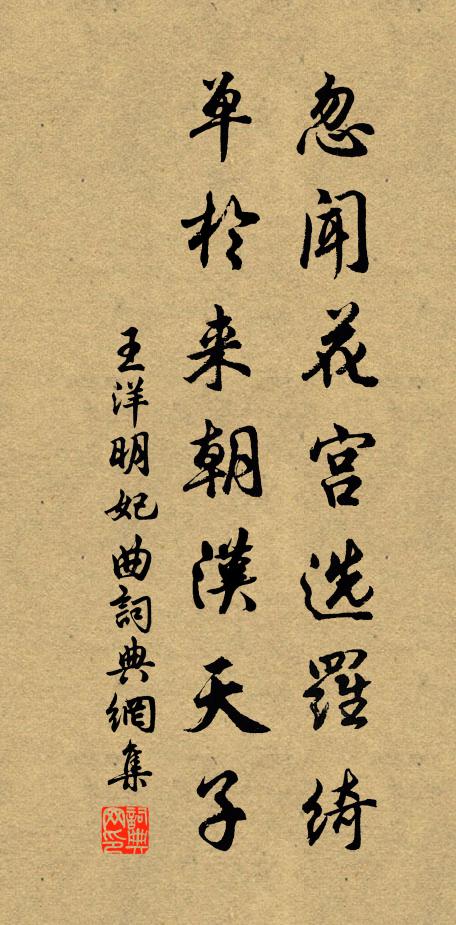 忽闻花宫选罗绮
单於来朝汉天子
王洋明妃曲詞典網集
詞典網印